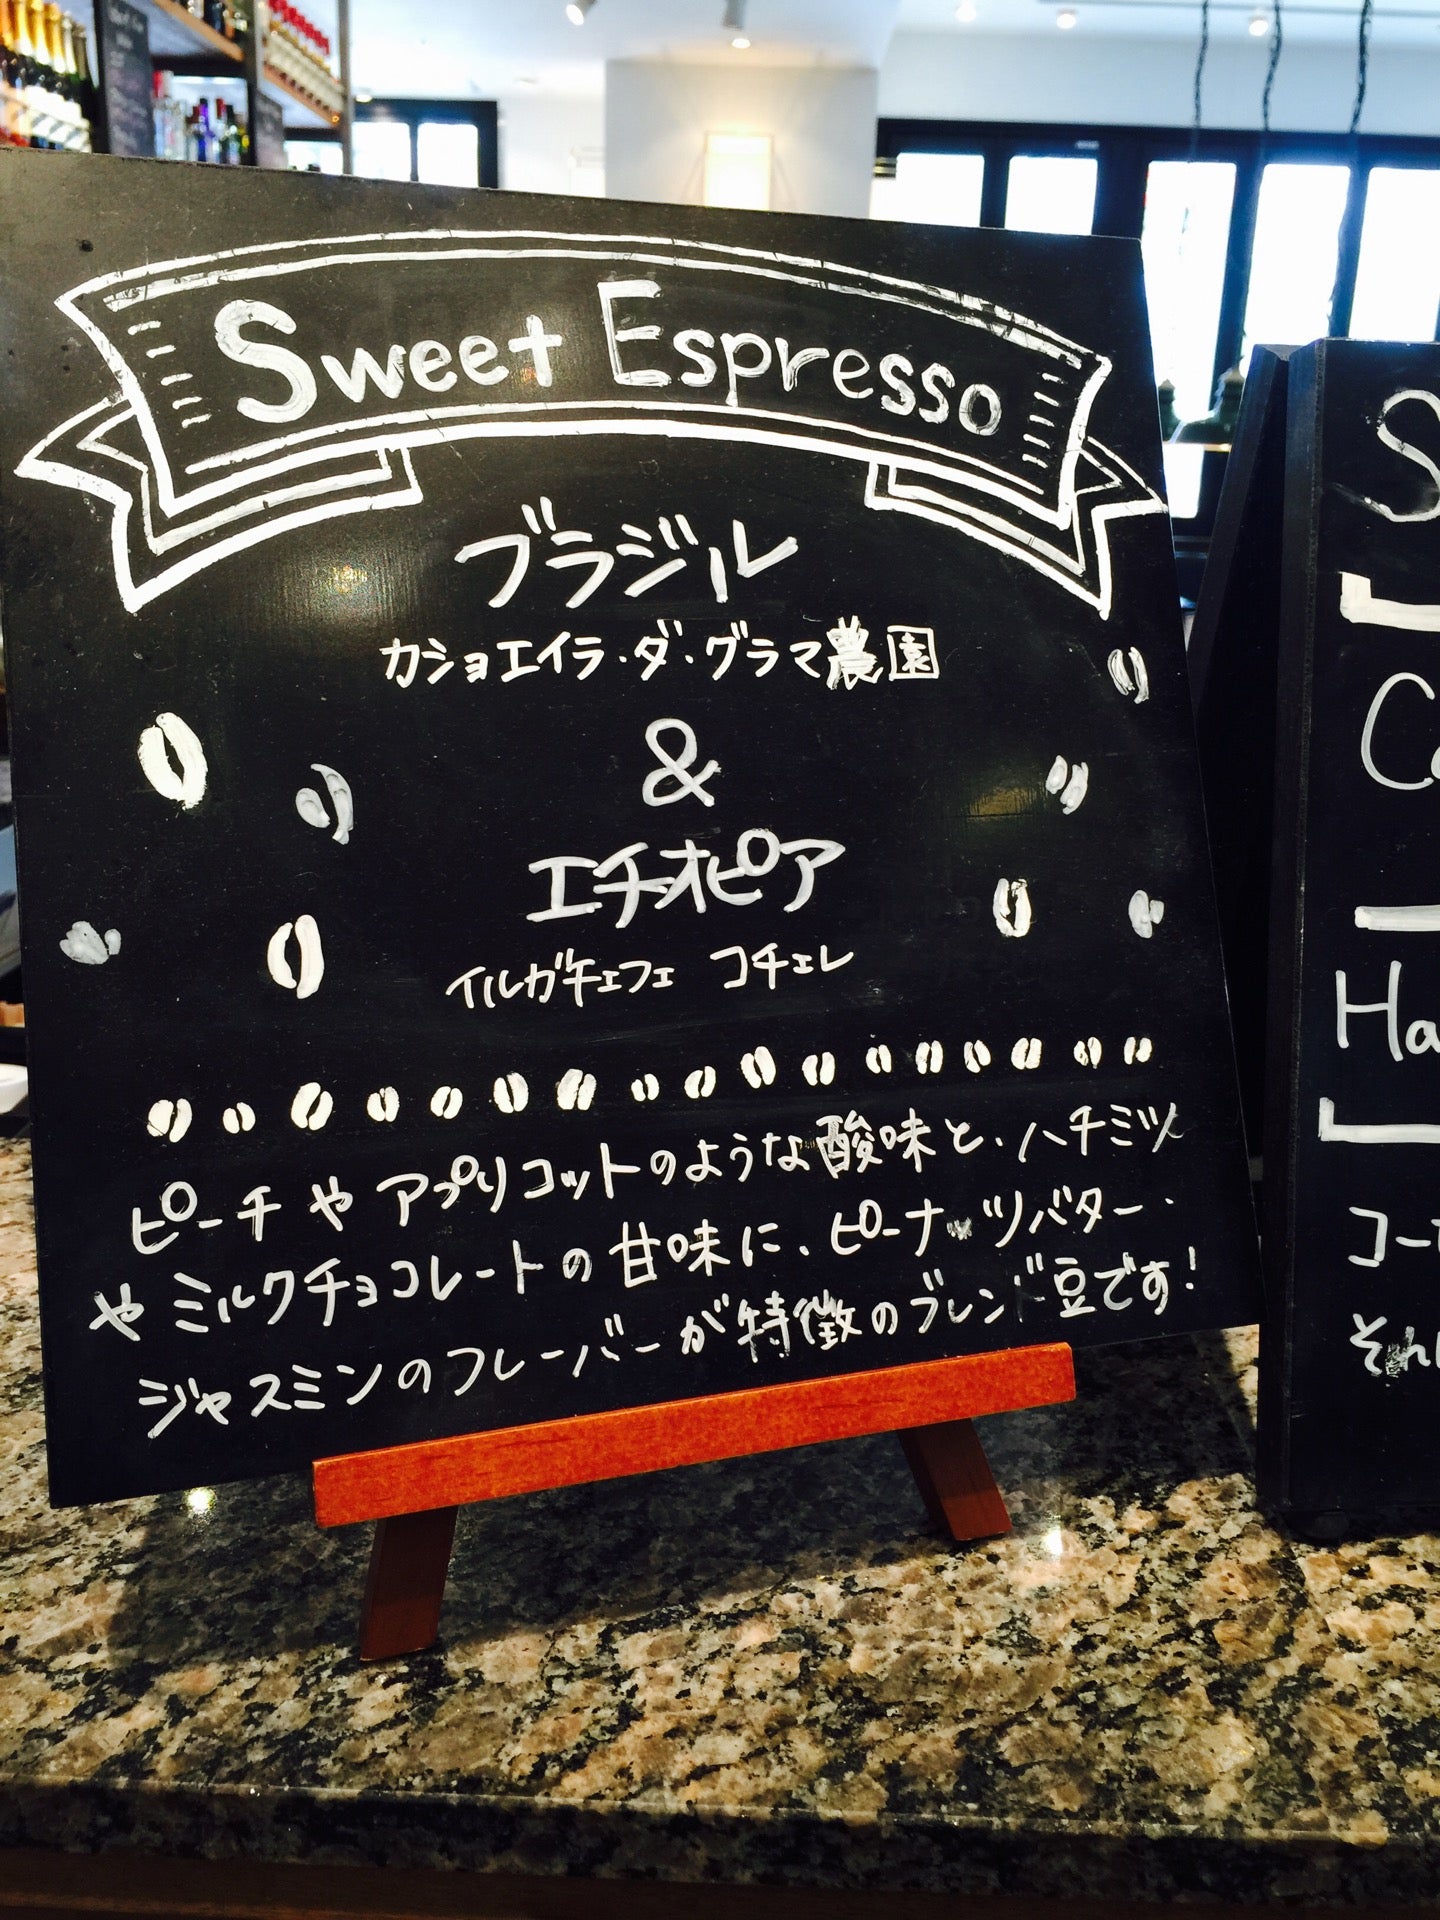 Sweet Espresso
ブラジル
カショエイラ・ダ・グラマ農園
&
エチオピア
イルガチェフェ コチェレ
ピーチやアプリコットのような酸味と、ハチミツ
やミルクチョコレートの甘味に、ピーナッツバター、
ジャスミンのフレーバーが特徴のブレンド豆です!
S
Co
Ha
コー
それ